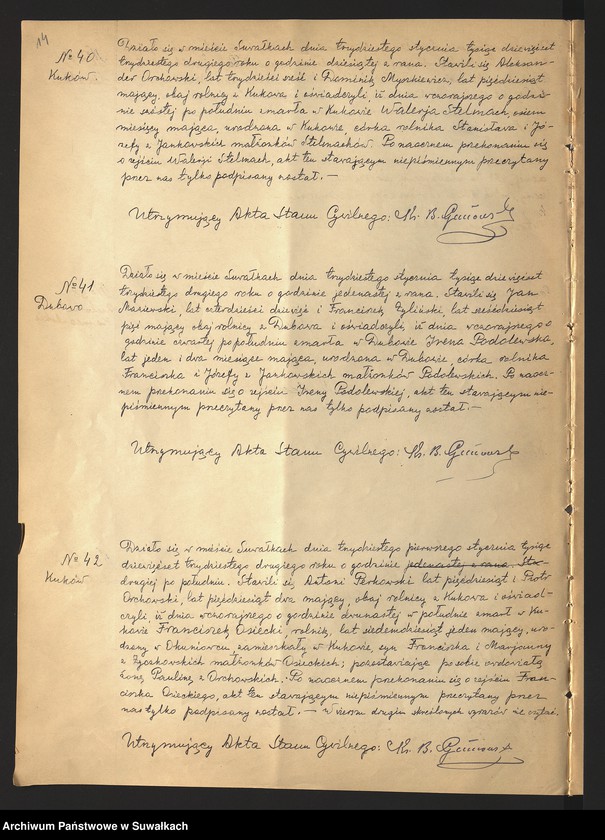 14
№ 40
Kuków.
Działo się w mieście Suwałkach dnia trzydziestego stycznia tysiąc dziewięćset
trzydziestego drugiego roku o godzinie dziesiątej z rana. Stawili się Aleksan-
der Orchowski, lat trzydzieści sześć i Dominik Myszkiewicz, lat pięćdziesiąt
mający, obaj rolnicy z Kukowa i oświadczyli, iż dnia wczorajszego o godzi-
nie szóstej po południu zmarła w Kukowie Walerja Stelmach, osiem
miesięcy mająca, urodzona w Kukowie, córka rolnika Stanisława i Jó-
zefy z Jankowskich małżonków Stelmachów. Po naocznem przekonaniu się
o zejściu Walerji Stelmach, akt ten stawającym niepiśmiennym przeczytany
przez nas tylko podpisany został. —
Utrzymujący Akta Stanu Cywilnego: Ks. B.
№ 41
Dubowo
Działo się w mieście Suwałkach dnia trzydziestego stycznia tysiąc dziewięćset
trzydziestego drugiego roku o godzinie jedenastej z rana. Stawili się Jan
lat czterdzieści dziewięć i Franciszek Żyliński, lat sześćdziesiąt
pięć mający obaj rolnicy z Dubowa i oświadczyli, iż dnia wczorajszego o
godzinie czwartej popołudniu zmarła w Dubowie Irena Podolewska,
lat jeden i dwa miesiące mająca, urodzona w Dubowie, córka rolnika
Franciszka i Józefy z Jankowskich małżonków Podolewskich. Po naocz-
nem przekonaniu się o zejściu Ireny Podolewskiej, akt ten stawającym nie-
piśmiennym przeczytany przez nas tylko podpisany został. —
Utrzymujący Akta Stanu Cywilnego: Ks. B.
№ 42
Kuków
Działo się w mieście Suwałkach dnia trzydziestego pierwszego stycznia tysiąc
dziewięćset trzydziestego drugiego roku o godzinie jedenastej z rana. Sta-
drugiej po południu. Stawili się Antoni Perkowski lat pięćdziesiąt i Piotr
Orchowski, lat pięćdziesiąt dwa mający, obaj rolnicy z Kukowa i oświad-
czyli, iż dnia wczorajszego o godzinie dwunastej w południe zmarł w Ku-
kowie Franciszek Osiecki, rolnik, lat siedemdziesiąt jeden mający, uro-
dzony w Okuniowcu, zamieszkały w Kukowie, syn Franciszka i Marjanny
z małżonków Osieckich; pozostawiając po sobie owdowiałą
żonę Paulinę z Orchowskich. Po naocznem przekonaniu się o zejściu Fran-
ciszka Osieckiego, akt ten stawającym niepiśmiennym przeczytany przez
nas tylko podpisany został. — w wierszu drugim skreślonych wyrazów nie czytać.
Utrzymujący Akta Stanu Cywilnego: Ks. B.
Archiwum Państwowe w Suwałkach